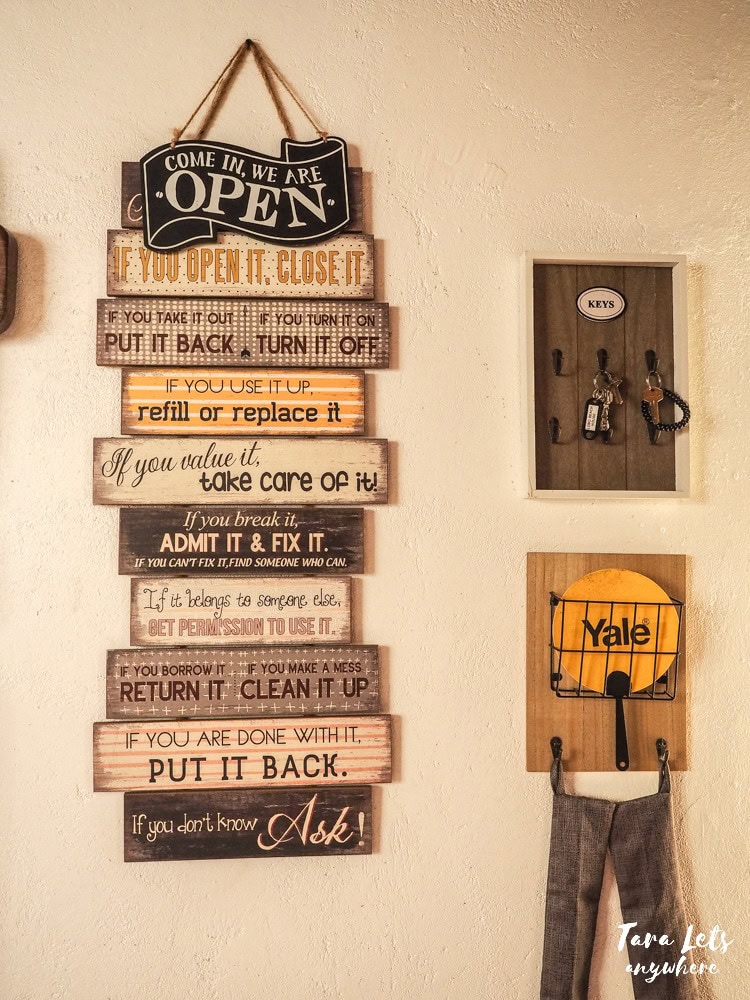 COME IN, WE ARE
·OPEN·
IF YOU OPEN IT, CLOSE IT
IF YOU TAKE IT OUT
PUT IT BACK
IF YOU TURN IT ON
TURN IT OFF
IF YOU USE IT UP,
refill or replace it
If you value it,
take care of it!
If you break it,
ADMIT IT & FIX IT.
IF YOU CAN'T FIX IT,FIND SOMEONE WHO CAN.
If it belongs to someone else,
GET PERMISSION TO USE IT.
IF YOU BORROW IT
RETURN IT
IF YOU MAKE A MESS
CLEAN IT UP
IF YOU ARE DONE WITH IT,
PUT IT BACK.
If you don't know Ask!
KEYS
Yale®
Tara Lets
anywhere